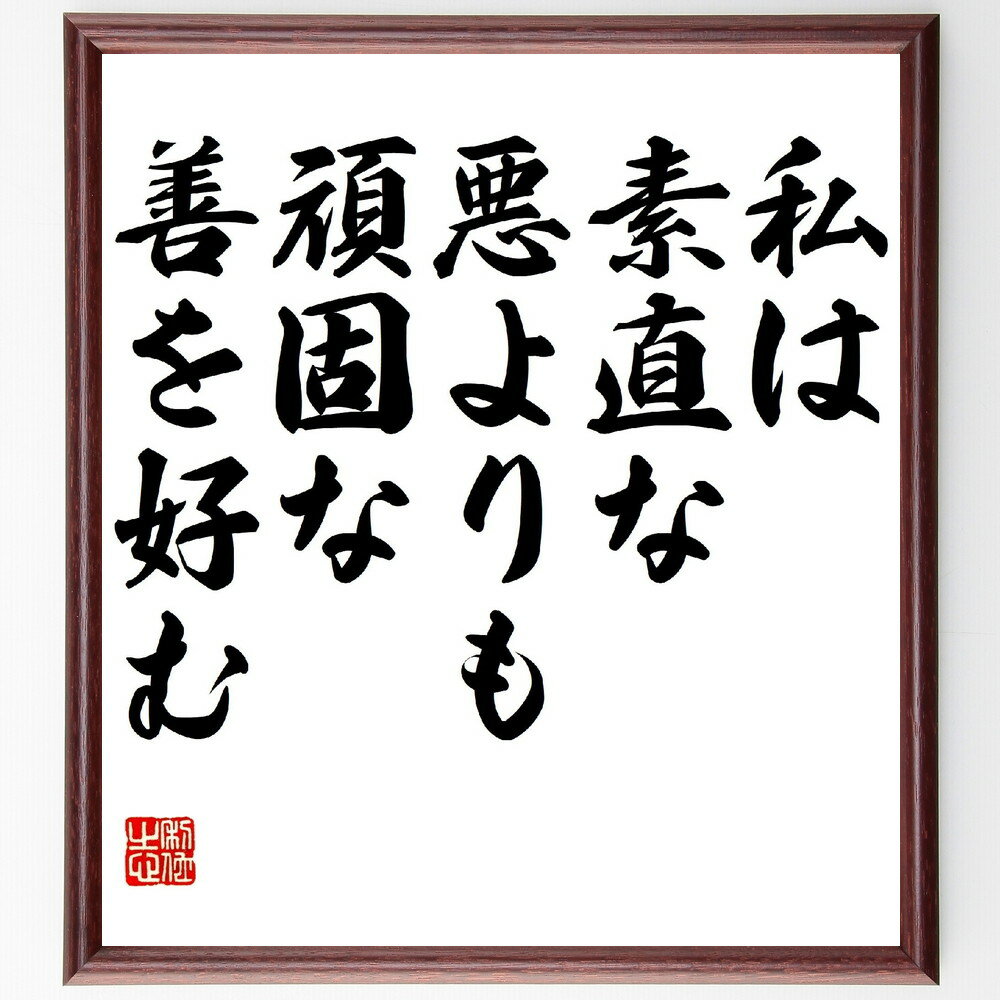 私は
素直な
悪よりも
頑固な
善を好む